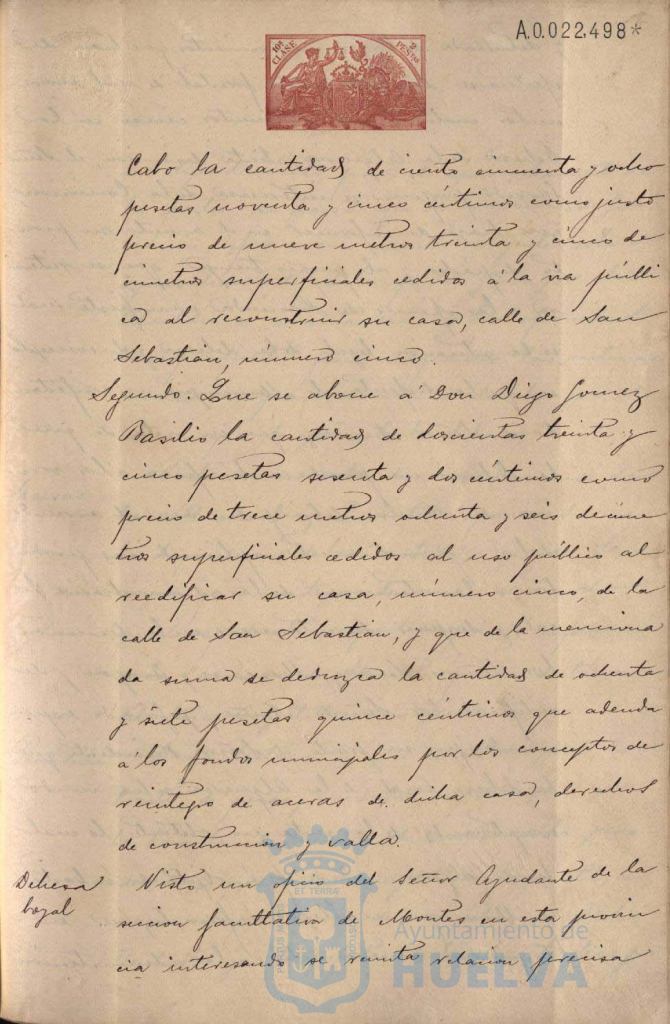 A.0.022.498*
10ª CLASE
2 PESETAS
Cabo la cantidad de ciento cincuenta y ocho
pesetas noventa y cinco céntimos como justo
precio de nueve metros treinta y cinco de
cimetros superficiales cedidos á la via públi
ca al reconstruir su casa, calle de San
Sebastián, número cinco.
Segundo. Que se abone á Don Diego Gomez
Basilio la cantidad de doscientas treinta y
cinco pesetas sesenta y dos céntimos como
precio de trece metros ochenta y seis decime
tros superficiales cedidos al uso público al
reedificar su casa, número cinco, de la
calle de San Sebastian, y que de la menciona
da suma se deduzca la cantidad de ochenta
y siete pesetas quince céntimos que adeuda
á los fondos municipales por los conceptos de
reintegro de aceras de dicha casa, derechos
de construccion y valla.
Dehesa
boyal
Visto un oficio del Señor Ayudante de la
seccion facultativa de Montes en esta provin
cia interesando se remita relacion precisa
Ayuntamiento de
HUELVA